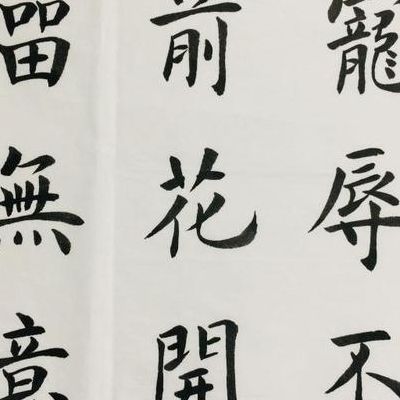 寵辱不
前花開
留無意